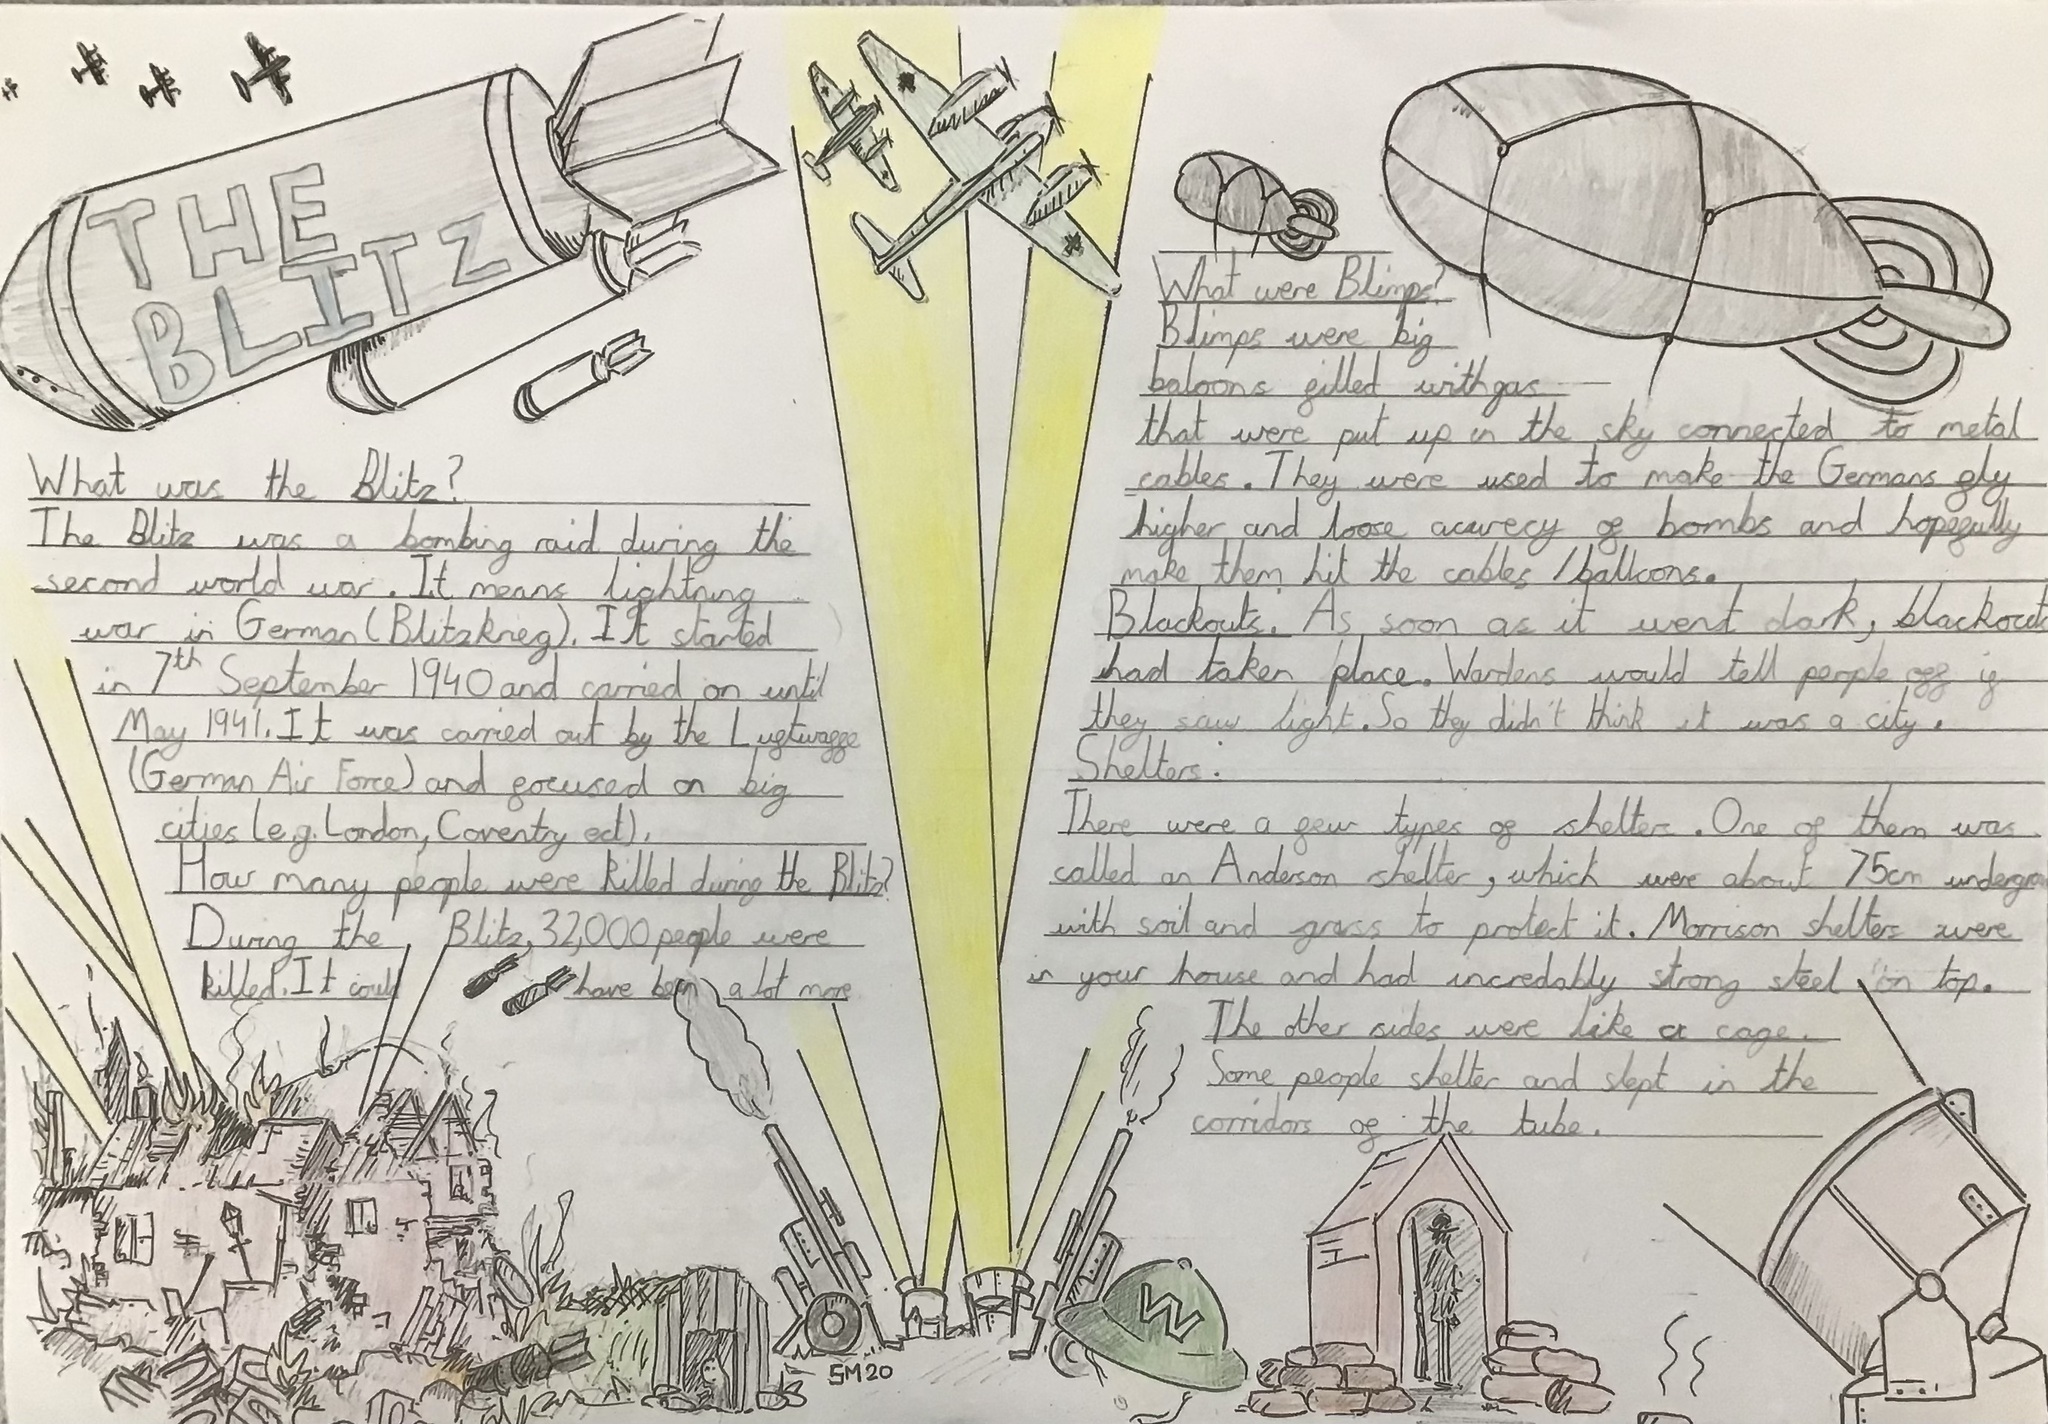 THE
BLITZ
What was the Blitz?
The Blitz was a bombing raid during the
second world war. It means lightning
war in German (Blitzkrieg). It started
in 7th September 1940 and carried on until
May 1941. It was carried out by the Luftwaffe
(German Air Force) and focused on big
cities (e.g. London, Coventry ect).
How many people were killed during the Blitz?
During the Blitz, 32,000 people were
killed. It could have been a lot more
What were Blimps?
Blimps were big
baloons filled with gas
that were put up in the sky connected to metal
cables. They were used to make the Germans fly
higher and loose accurecy of bombs and hopefully
make them hit the cables / balloons.
Blackouts. As soon as it went dark, blackouts
had taken place. Wardens would tell people off if
they saw light. So they didn't think it was a city.
Shelters.
There were a few types of shelter. One of them was
called an Anderson shelter, which were about 75cm
with soil and grass to protect it. Morrison shelters were
in your house and had incredably strong steel on top.
The other sides were like a cage.
Some people shelter and slept in the
corridors of the tube.
W
SM20